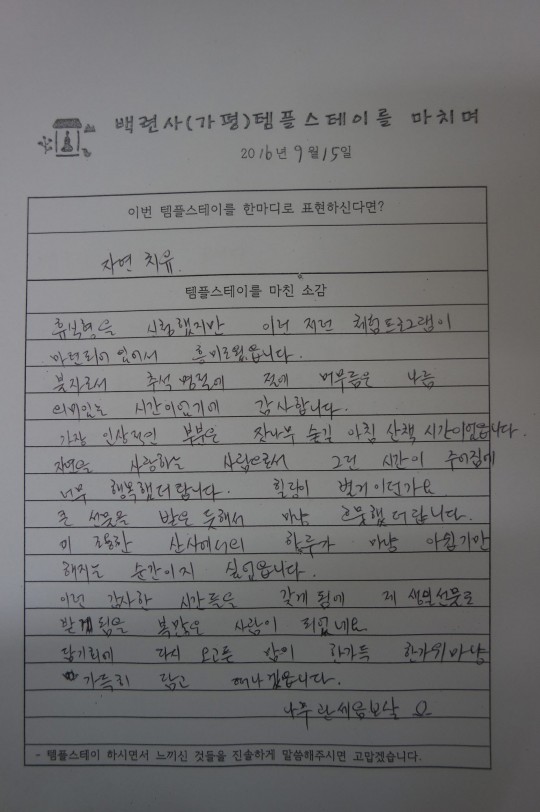 백련사(가평)템플스테이를 마치며
2016년 9월 15일
이번 템플스테이를 한마디로 표현하신다면?
자연 치유.
템플스테이를 마친 소감
휴식형을 신청했지만 이러 저런 체험프로그램이
마련되어 있어서 흥미로웠읍니다.
불자로서 추석 명절에 절에 머무름은 나름
의미있는 시간이었기에 감사합니다.
가장 인상적인 부분은 잣나무 숲길 아침 산책 시간이었읍니다.
자연을 사랑하는 사람으로서 그런 시간이 주어짐에
너무 행복했더랍니다. 힐링이 별거이던가요
큰 선물을 받은 듯해서 마냥 흐뭇했더랍니다.
이 조용한 산사에서의 하루가 마냥 아쉽기만
해지는 순간이지 싶읍니다.
이런 감사한 시간들을 갖게 됨에 제 생일선물로
받게 됨을 복많은 사람이 되었네요.
담기회에 다시 오고픈 맘이 한가득 한가위마냥
가득히 담고 떠나갑읍니다.
나무관세음보살
- 템플스테이 하시면서 느끼신 것들을 진솔하게 말씀해주시면 고맙겠습니다.